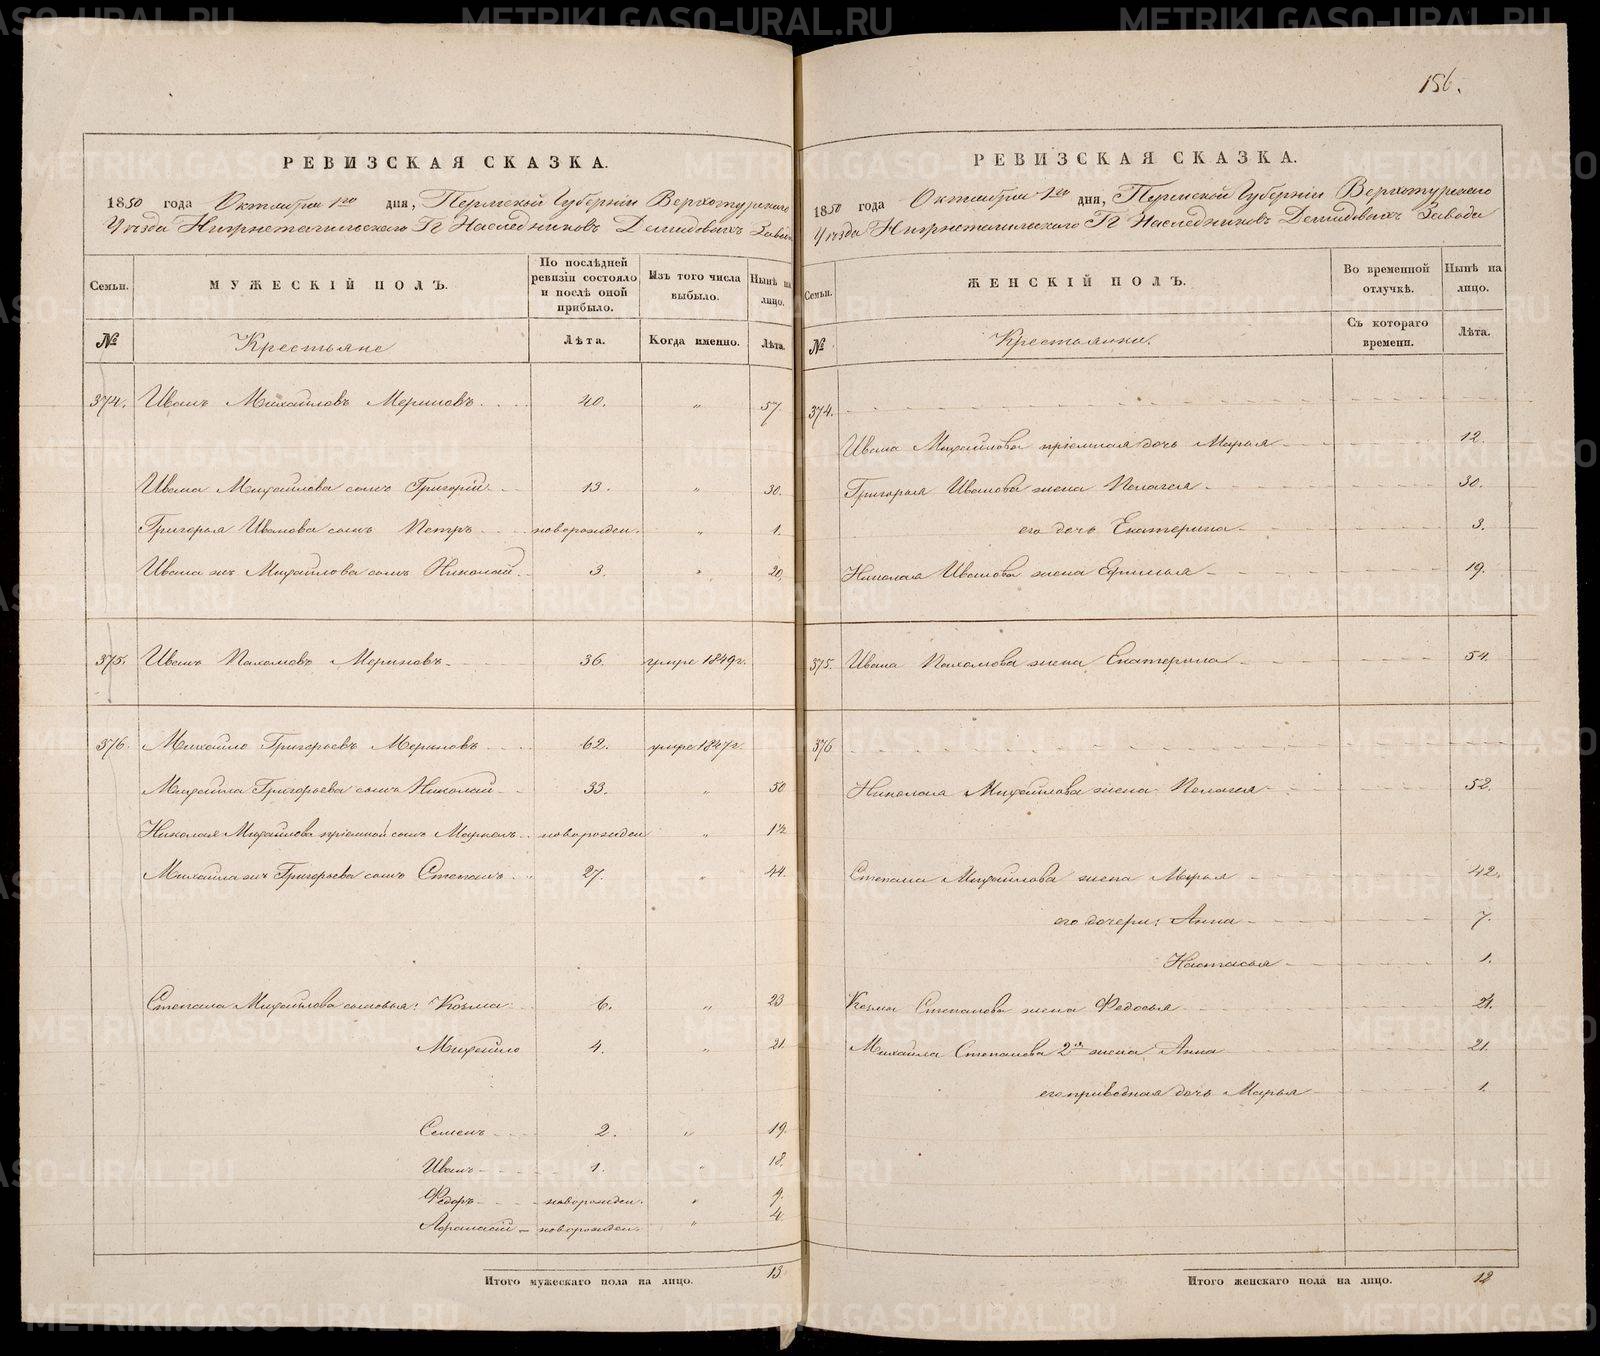 156.
РЕВИЗСКАЯ СКАЗКА.
1850 года Октября 1го дня, Пермской Губерніи Верхотурскаго
Уѣзда Нижнетагильскаго Гг Наследниковъ Демидовыхъ Завода
Семьи.
МУЖЕСКІЙ ПОЛЪ.
По послѣдней ревизіи состояло и послѣ оной прибыло.
Изъ того числа выбыло.
Нынѣ на лицо.
№
Крестьяне
Лѣта.
Когда именно.
Лѣта.
374. Иванъ Михайловъ Мериновъ 40. " 57.
Ивана Михайлова сынъ Григорій 13. " 30.
Григорья Иванова сынъ Петръ новорожден. " 1.
Ивана жъ Михайлова сынъ Николай 3. " 20.
375. Иванъ Пахомовъ Мериновъ 36. умре 1849г.
376. Михайло Григорьевъ Мериновъ 62. умре 1847г.
Михайла Григорьева сынъ Николай 33. " 50
Николая Михайлова пріемной сынъ Маркелъ новорожден " 1½
Михайла жъ Григорьева сынъ Степанъ 27. " 44.
Степана Михайлова сыновья: Козма 6. " 23
Михайло 4. " 21
Семенъ 2. " 19.
Иванъ 1. " 18.
Федоръ новорожден. " 9.
Афанасій новорожден. " 4
Итого мужескаго пола на лицо. 13
РЕВИЗСКАЯ СКАЗКА.
1850 года Октября 1го дня, Пермской Губерніи Верхотурскаго
Уѣзда Нижнетагильскаго Гг Наследниковъ Демидовыхъ Завода
Семьи.
ЖЕНСКІЙ ПОЛЪ.
Во временной отлучкѣ.
Нынѣ на лицо.
№
Крестьянки.
Съ котораго времени.
Лѣта.
374.
Ивана Михайлова пріемная дочь Марья 12.
Григорья Иванова жена Пелагея 30.
его дочь Екатерина 3.
Николая Иванова жена Ефимья 19.
375. Ивана Пахомова жена Екатерина 54.
376
Николая Михайлова жена Пелагея 52.
Степана Михайлова жена Марья 42.
его дочери: Анна 7.
Настасья 1.
Козмы Степанова жена Федосья 24.
Михайла Степанова 2я жена Анна 21.
его приводная дочь Марья 1.
Итого женскаго пола на лицо. 12
METRIKI.GASO-URAL.RU